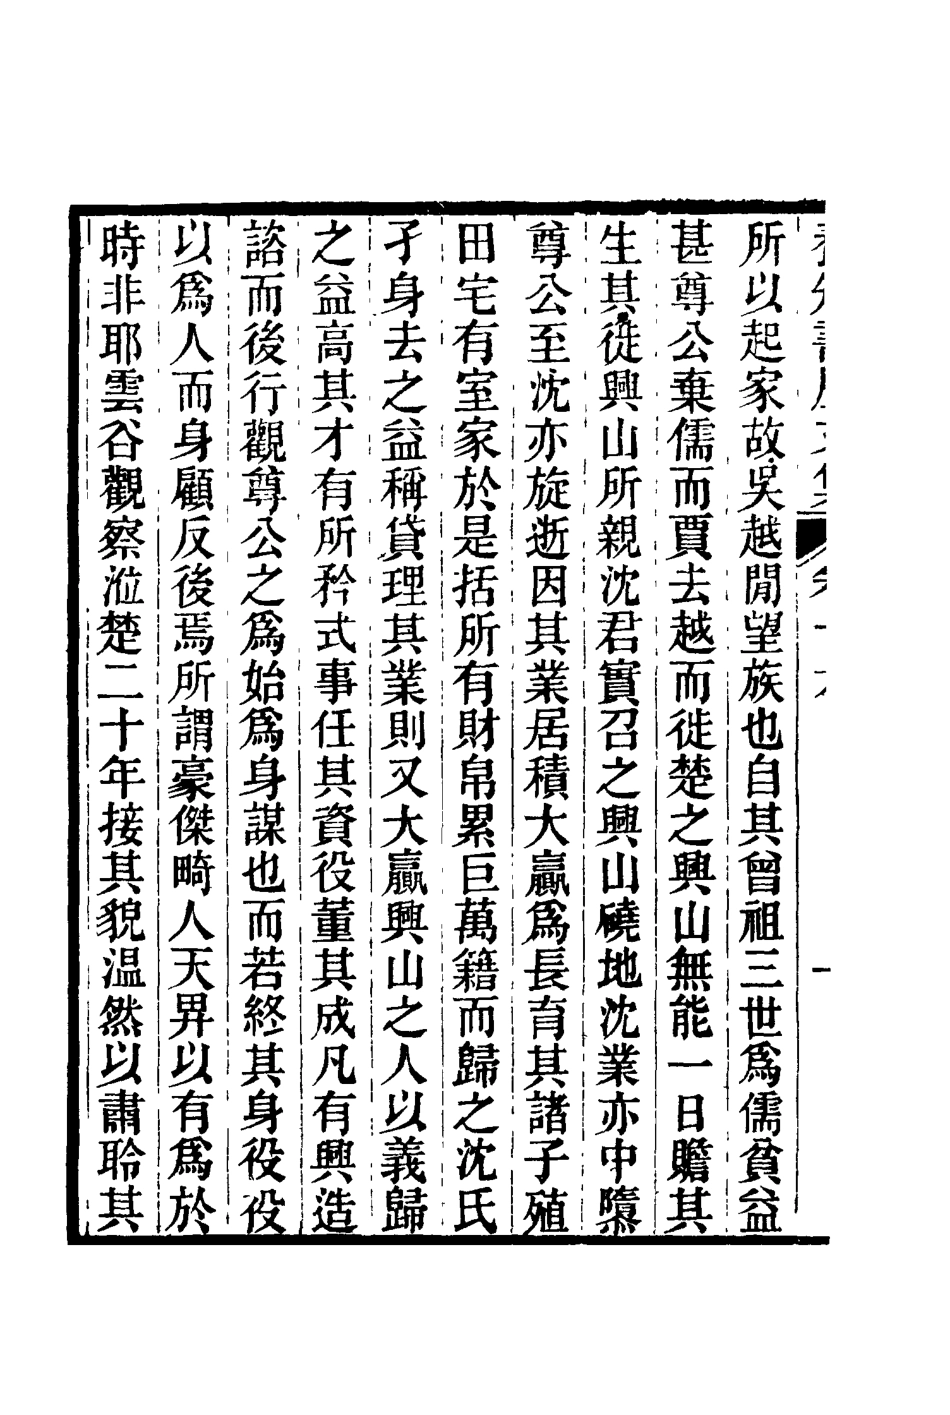 所以起家故吳越閒望族也自其曾祖三世爲儒貧益
甚尊公棄儒而賈去越而徙楚之興山無能一日贍其
生其徙興山所親沈君實召之興山磽地沈業亦中隳
尊公至沈亦旋逝因其業居積大贏爲長育其諸子殖
田宅有室家於是括所有財帛累巨萬籍而歸之沈氏
孑身去之益稱貸理其業則又大贏興山之人以義歸
之益高其才有所矜式事任其資役董其成凡有興造
諮而後行觀尊公之爲始爲身謀也而若終其身役役
以爲人而身顧反後焉所謂豪傑畸人天畀以有爲於
時非耶雲谷觀察涖楚二十年接其貌温然以肅聆其